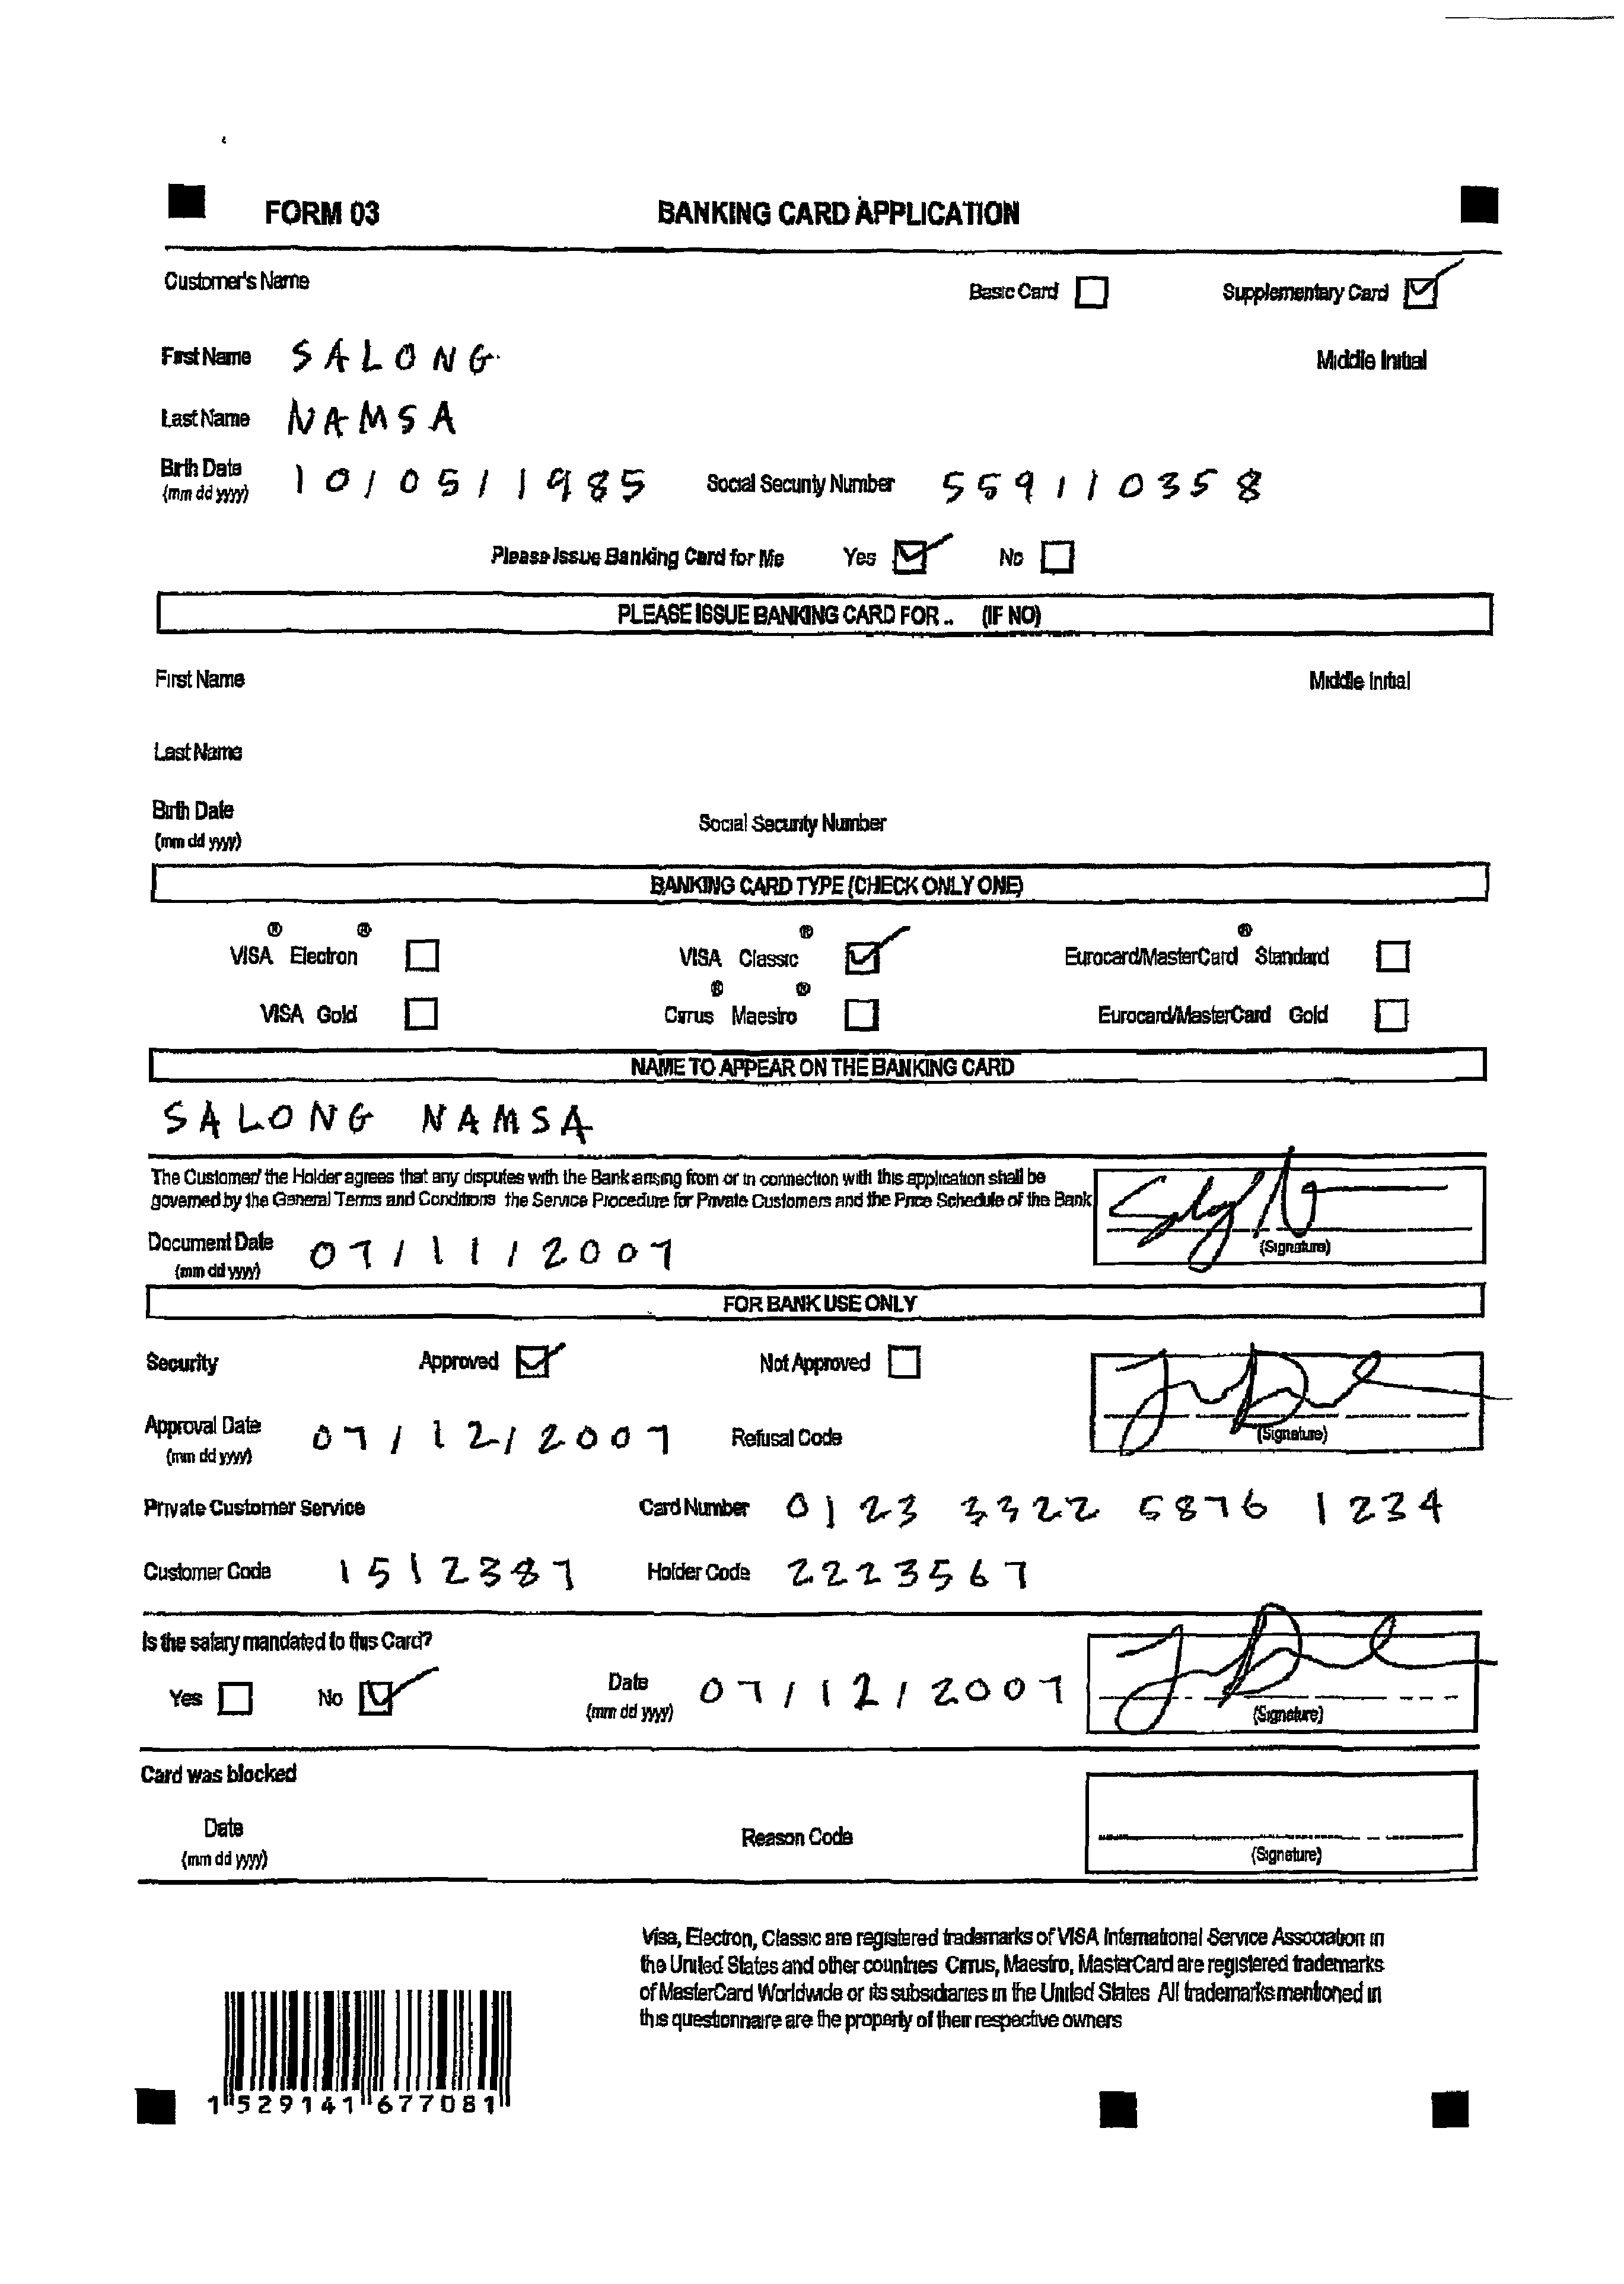 FORM 03 BANKING CARD APPLICATION
Customer's Name Basic Card Supplementary Card
First Name SALONG Middle Initial
Last Name NAMSA
Birth Date (mm dd yyyy) 10/05/1985 Social Security Number 559110358
Please Issue Banking Card for Me Yes No
PLEASE ISSUE BANKING CARD FOR .. (IF NO)
First Name Middle Initial
Last Name
Birth Date
(mm dd yyyy) Social Security Number
BANKING CARD TYPE (CHECK ONLY ONE)
® ® ® ®
VISA Electron VISA Classic Eurocard/MasterCard Standard
® ®
VISA Gold Cirrus Maestro Eurocard/MasterCard Gold
NAME TO APPEAR ON THE BANKING CARD
SALONG NAMSA
The Customer/ the Holder agrees that any disputes with the Bank arising from or in connection with this application shall be
governed by the General Terms and Conditions the Service Procedure for Private Customers and the Price Schedule of the Bank
Document Date (mm dd yyyy) 07/11/2007 (Signature)
FOR BANK USE ONLY
Security Approved Not Approved
Approval Date (mm dd yyyy) 07/12/2007 Refusal Code (Signature)
Private Customer Service Card Number 0123 3322 5876 1234
Customer Code 1512387 Holder Code 2223567
Is the salary mandated to this Card?
Yes No Date (mm dd yyyy) 07/12/2007 (Signature)
Card was blocked
Date
(mm dd yyyy) Reason Code (Signature)
Visa, Electron, Classic are registered trademarks of VISA International Service Association in
the United States and other countries Cirrus, Maestro, MasterCard are registered trademarks
of MasterCard Worldwide or its subsidiaries in the United States All trademarks mentioned in
this questionnaire are the property of their respective owners
1 529141 677081